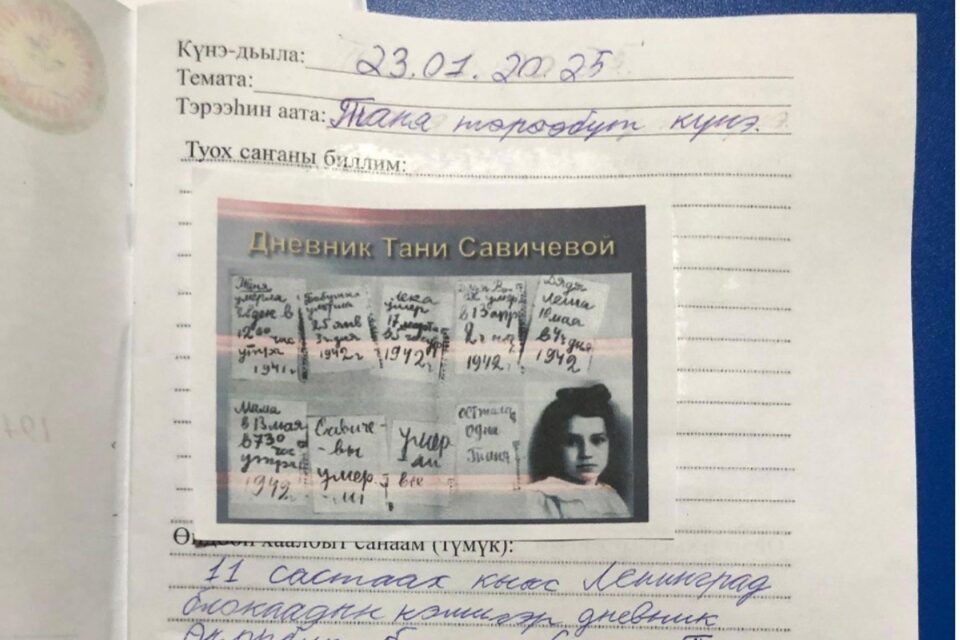 Күнэ-дьыла: 23.01.2025
Темата:
Тэрээһин аата: Таня төрөөбүт күнэ.
Туох саҥаны биллим:
Дневник Тани Савичевой
Женя
умерла
28 дек в
12.00 час
утра
1941 г
Бабушка
умерла
25 янв
3 ч дня
1942 г
Лека
умер
17 марта
в 5 час утр
1942 г
в 13 апр
2 ч ноч
1942 г
Дядя
Леша
10 мая
в 4 ч дня
1942
Мама
в 13 мая
в 7.30
час
утра
1942
Савиче-
-вы
умер
ли
умер
ли
все
осталась
одна
Таня
хаалбыт санаам (түмүк):
11 састаах кыыс Ленинград
блокадын кэмигэр дневник